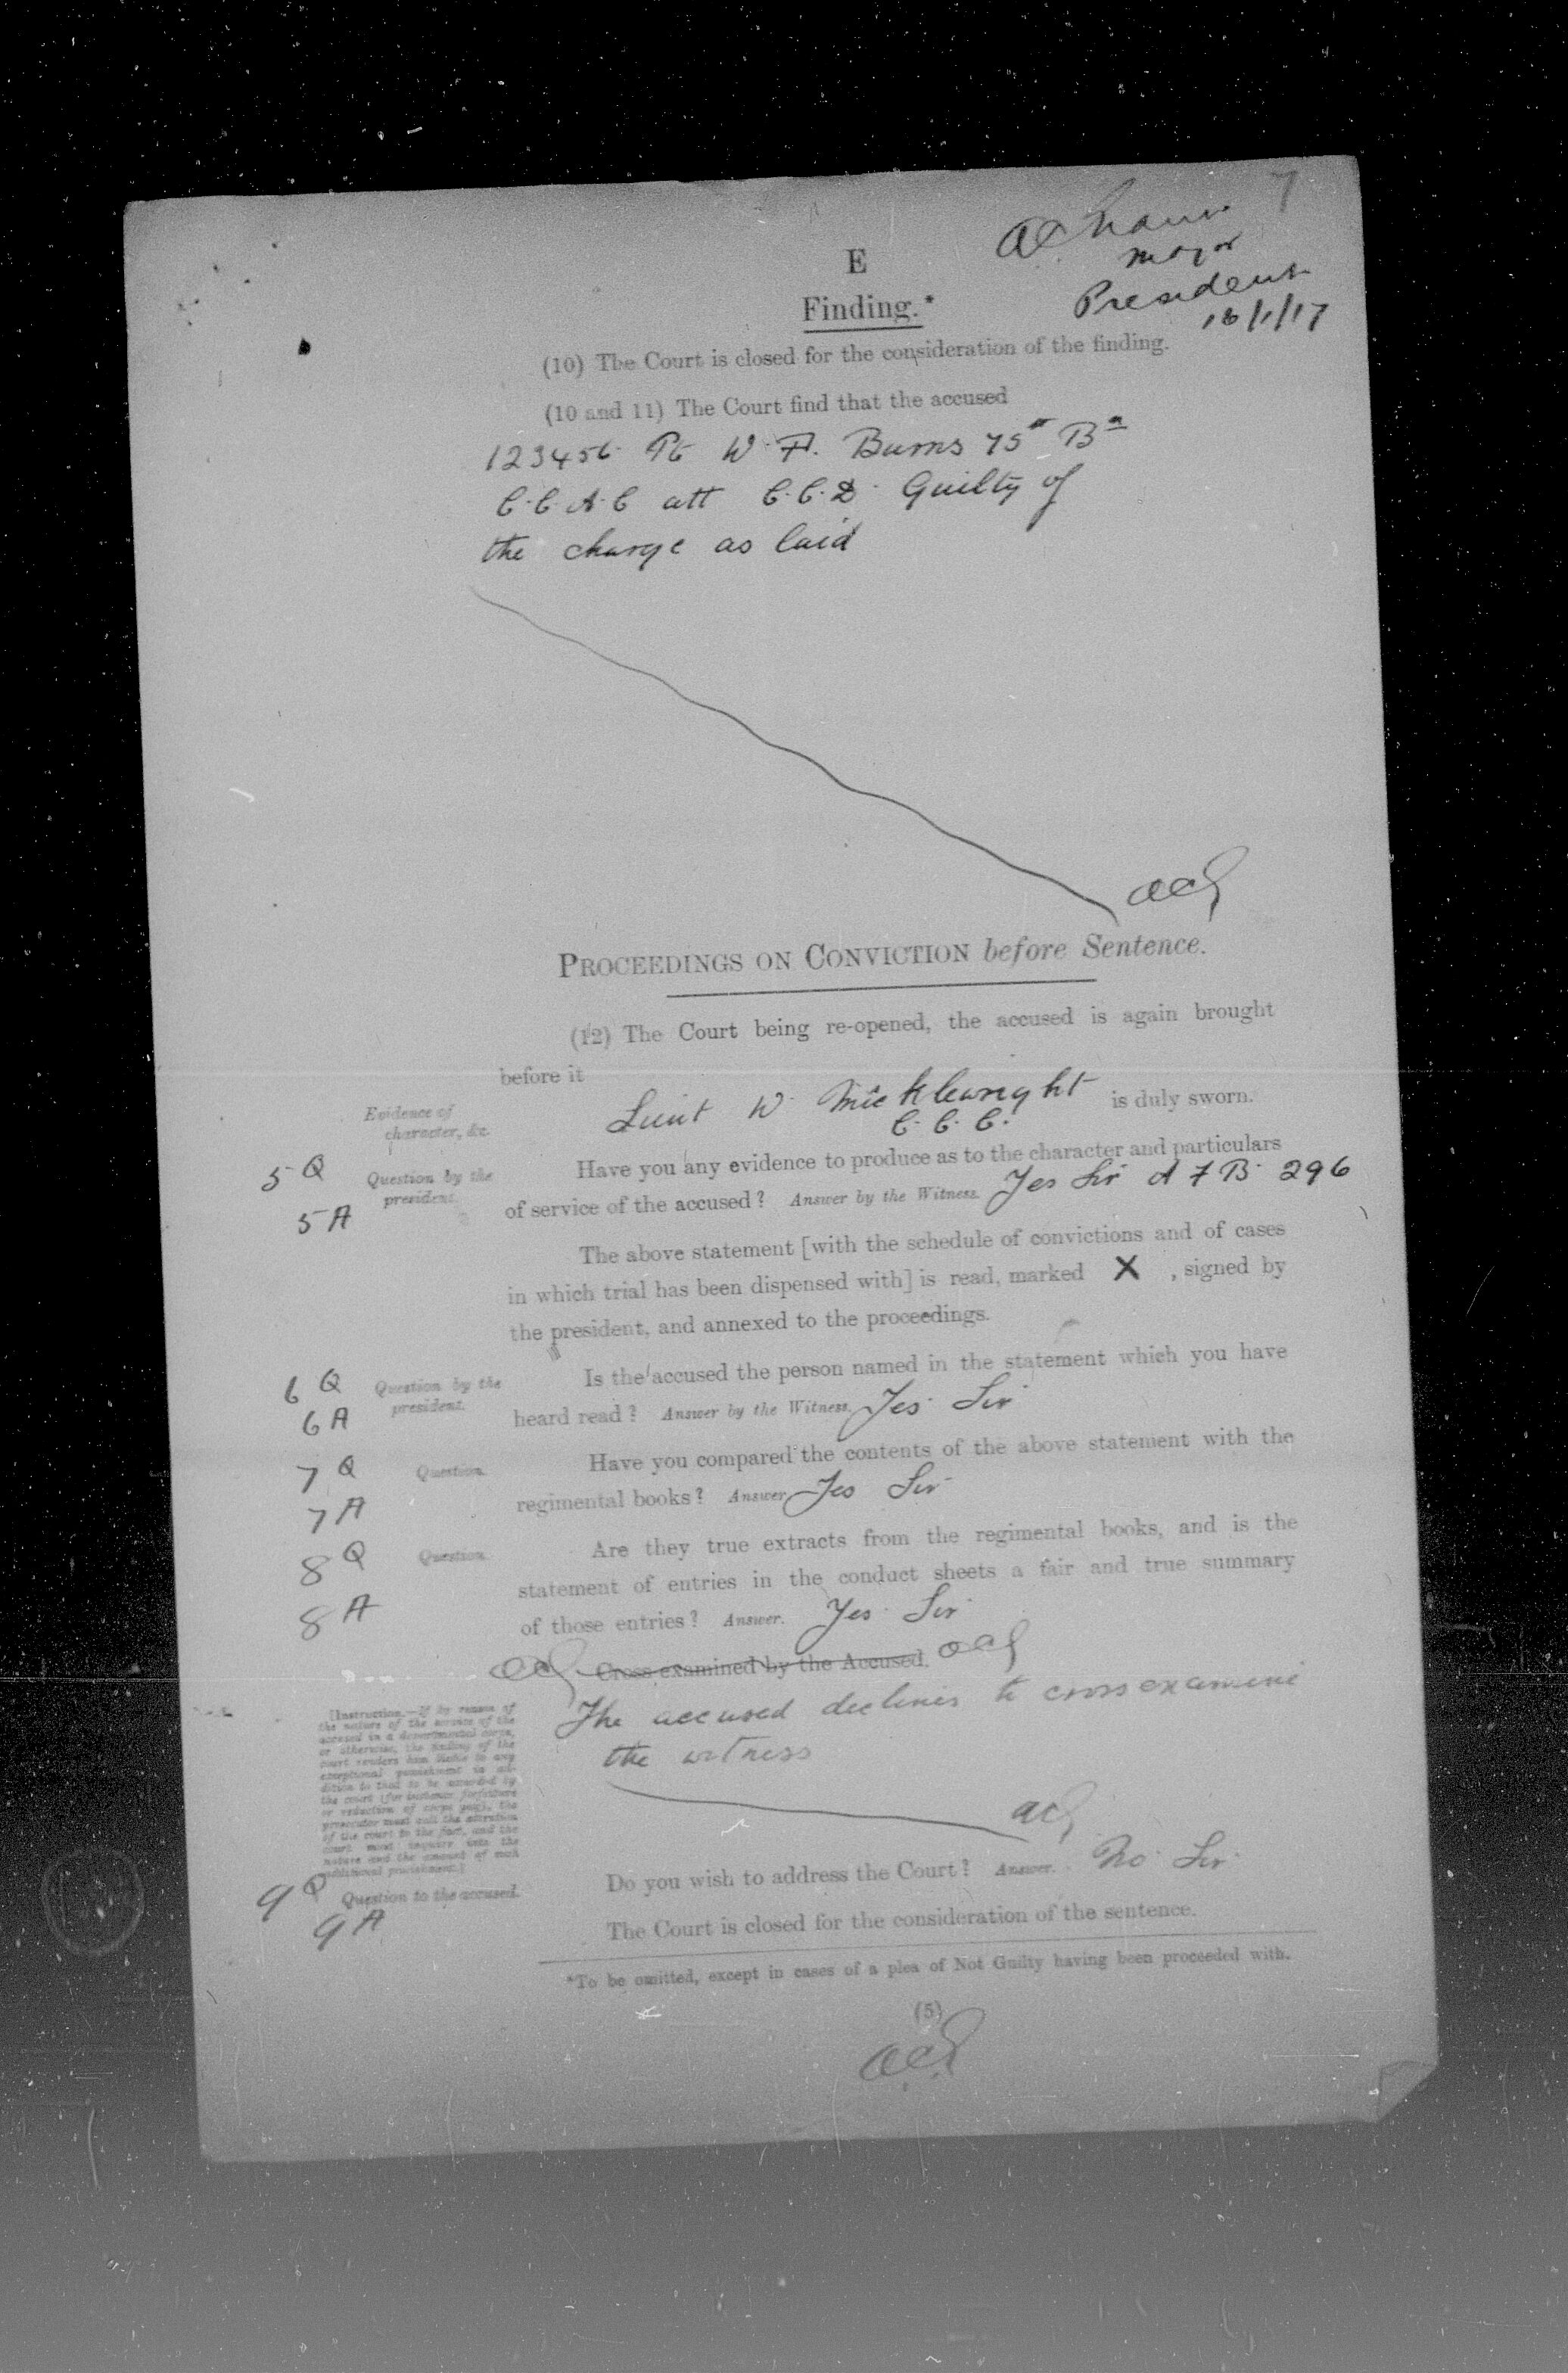 7
Major
President
16/1/17
E
Finding.*
(10) The Court is closed for the consideration of the finding.
(10 and 11) The Court find that the accused
123456 Pt W. A. Burns 75th Bn
C.C.A.C att C.C.D. Guilty of
the charge as laid
PROCEEDINGS ON CONVICTION before Sentence.
(12) The Court being re-opened, the accused is again brought
before it
Evidence of
character, &c.
Lieut W. Micklewright is duly sworn.
C. C. C.
5 Q Question by the
president.
5 A
Have you any evidence to produce as to the character and particulars
of service of the accused? Answer by the Witness. Yes Sir A F B 296
The above statement [with the schedule of convictions and of cases
in which trial has been dispensed with] is read, marked X , signed by
the president, and annexed to the proceedings.
6 Q Question by the
president.
6 A
Is the accused the person named in the statement which you have
heard read? Answer by the Witness. Yes Sir
7 Q Question.
7 A
Have you compared the contents of the above statement with the
regimental books? Answer Yes Sir
8 Q Question.
8 A
Are they true extracts from the regimental books, and is the
statement of entries in the conduct sheets a fair and true summary
of those entries? Answer. Yes Sir
Cross-examined by the Accused.
The accused declines to cross examine
the witness
[Instruction.—If by reason of
the nature of the service of the
accused in a departmental corps,
or otherwise, the finding of the
court renders him liable to any
exceptional punishment in ad-
dition to that to be awarded by
the court (for instance forfeiture
or reduction of corps pay), the
prosecutor must call the attention
of the court to the fact, and the
court must inquire into the
nature and the amount of such
additional punishment.]
9 Q Question to the accused.
9 A
Do you wish to address the Court? Answer. No Sir
The Court is closed for the consideration of the sentence.
*To be omitted, except in cases of a plea of Not Guilty having been proceeded with.
(5)